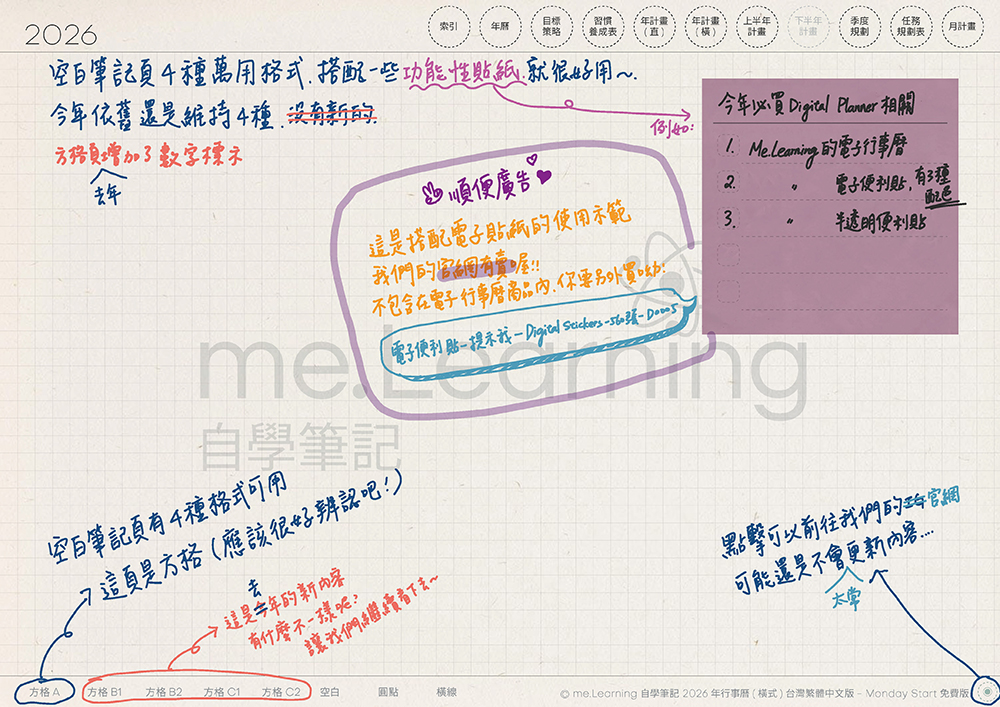 2026
索引
年曆
目標
策略
習慣
養成表
年計畫
(直)
年計畫
(橫)
上半年
計畫
下半年
計畫
季度
規劃
任務
規劃表
月計畫
空白筆記頁4種萬用格式.搭配一些功能性貼紙.就很好用～.
今年依舊還是維持4種.沒有新的.
方格頁增加了數字標示
去年
例如:
今年必買Digital Planner相關
1. Me.Learning的電子行事曆
2. 〃 電子便利貼,有3種
配色
3. 〃 半透明便利貼
順便廣告
這是搭配電子貼紙的使用示範
我們的官網有賣喔!!
不包含在電子行事曆商品內.你要另外買呦.
電子便利貼-提示我-Digital Stickers-560張-D0005
me.Learning
自學筆記
空白筆記頁有4種格式可用
→這頁是方格(應該很好辨認吧!)
去
這是今年的新內容
有什麼不一樣呢?
讓我們繼續看下去~
點擊可以前往我們的官網
可能還是不會更新內容....
太常
方格 A
方格 B1
方格 B2
方格 C1
方格 C2
空白
圓點
橫線
© me.Learning 自學筆記 2026 年行事曆 ( 橫式 ) 台灣繁體中文版 – Monday Start 免費版